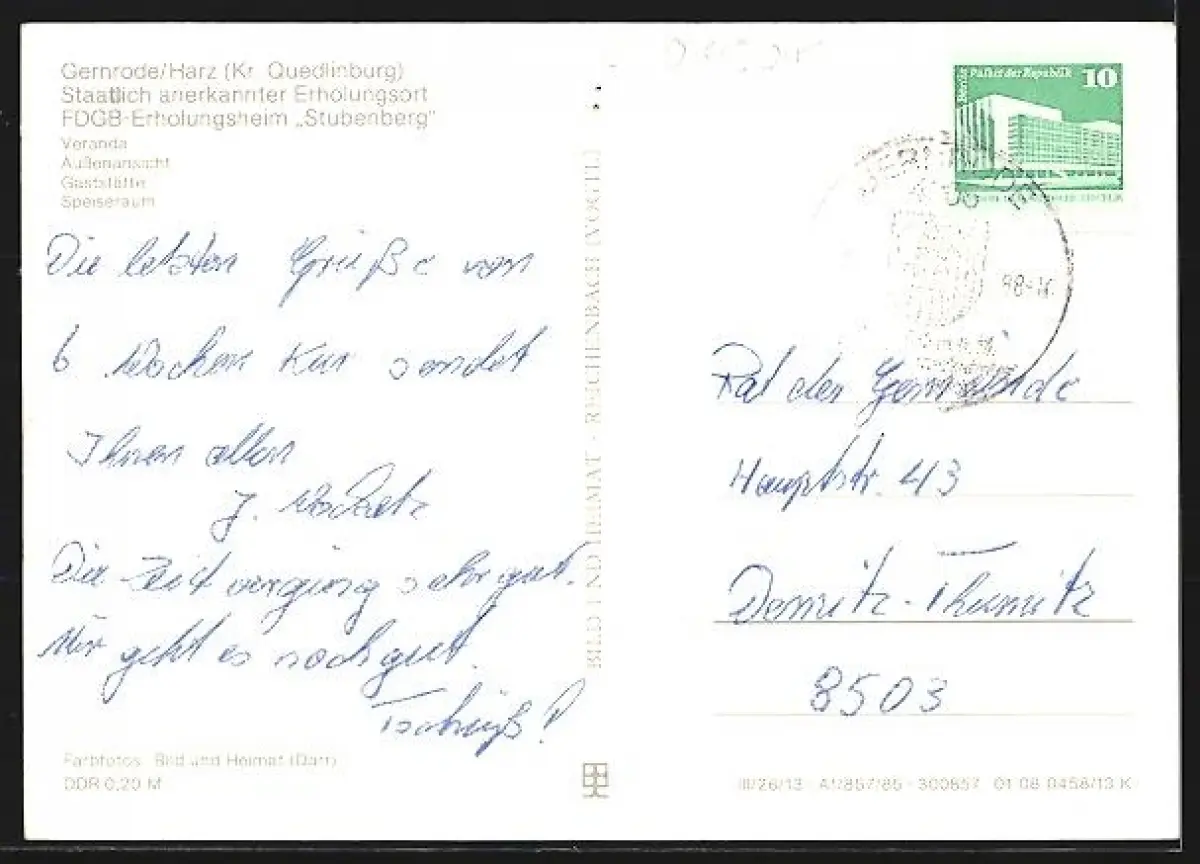 Gernrode/Harz (Kr. Quedlinburg)
Staatlich anerkannter Erholungsort
FDGB-Erholungsheim „Stubenberg"
Veranda
Außenansicht
Gaststätte
Speiseraum
Die letzten Grüße von
6 Wochen Kur sendet
Ihnen allen
J.
Die Zeit verging sehr gut.
Mir geht es noch gut.
Tschüß!
Farbfotos: Bild und Heimat (Darr)
DDR 0,20 M
BILD UND HEIMAT · REICHENBACH (VOGTL)
Berlin Palast der Republik 10
Rat der Gemeinde
Hauptstr. 43
Demitz-Thumitz
8503
III/26/13 A1/857/85 - 300857 01 08 0458/13 K